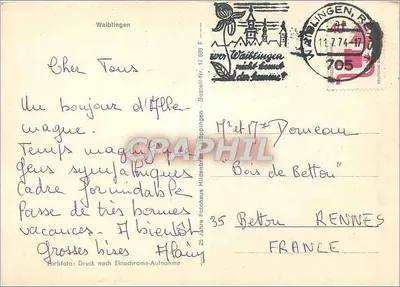 Waiblingen
Cher Tous
Un bonjour d'Alle
magne.
Temps magnifique
gens sympathiques
Cadre formidable
Passe de très bonnes
vacances - A bientôt
Grosses bises Alain
Farbfoto: Druck nach Ektachrome-Aufnahme
25 Jahre Fotohaus Hildenbrand Göppingen - Bestell-Nr. 17 889 F
wer Waiblingen
nicht kennt
der komme!
WAIBLINGEN, REMS
11.7.74-17
705
CPARAMA
M. et Mme
"Bois de Betton"
35 Betton RENNES
FRANCE